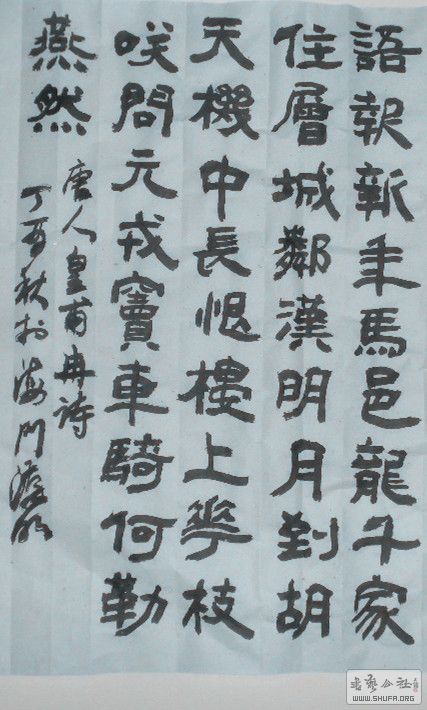 語報新年馬邑龍千家
住層城鄰漢明月到胡
天機中長恨樓上華枝
咲問元戎竇車騎何勒
燕然
唐人皇甫冉詩
丁酉秋於海門
書藝公社
WWW.SHUFA.ORG